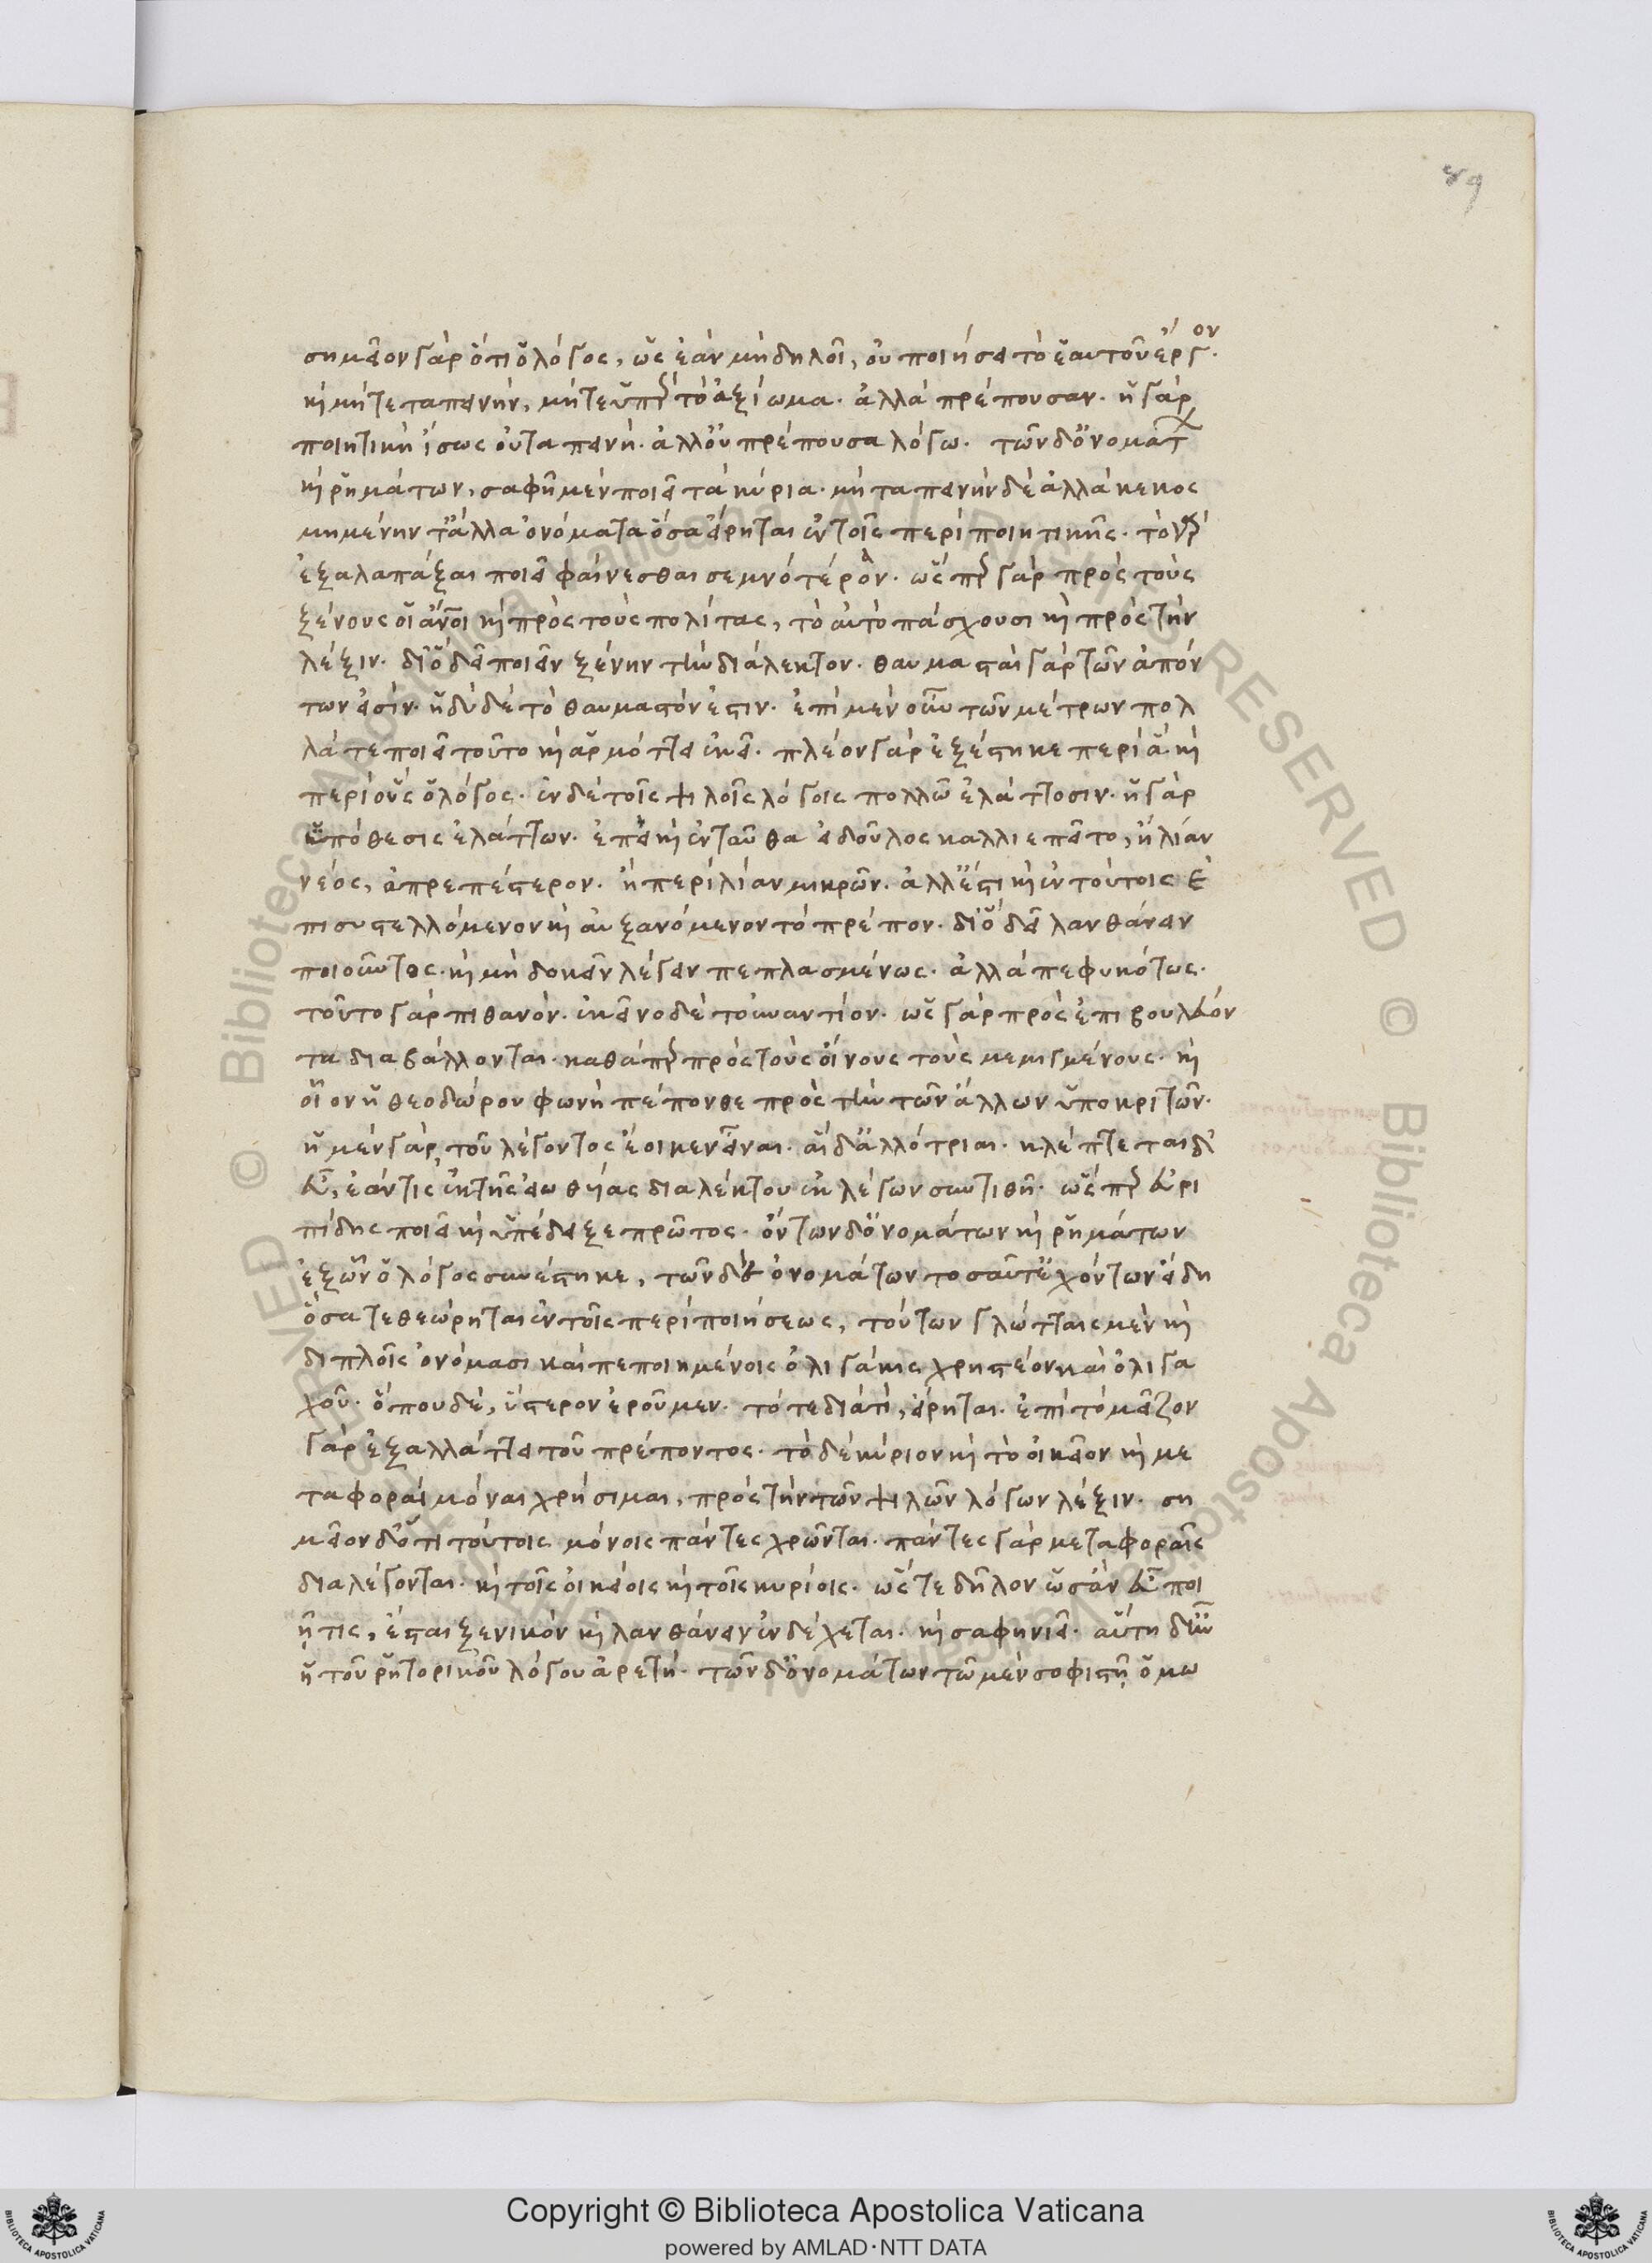 σημεῖον γὰρ ὅτι ὁ λόγος, ὡς ἐὰν μὴ δηλοῖ, οὐ ποιήσει τὸ ἑαυτοῦ ἔργον.
καὶ μήτε ταπεινὴν, μήτε ὑπὲρ τὸ ἀξίωμα. ἀλλὰ πρέπουσαν. ἡ γὰρ
ποιητικὴ ἴσως οὐ ταπεινή. ἀλλ' οὐ πρέπουσα λόγω. τῶν δ' ὀνομάτων
καὶ ῥημάτων, σαφῆ μὲν ποιεῖ τὰ κύρια. μὴ ταπεινὴν δὲ ἀλλὰ κεκος
μημένην τἄλλα ὀνόματα ὅσα εἴρηται ἐν τοῖς περὶ ποιητικῆς. τὸ γὰρ
ἐξαλαπάξαι ποιεῖ φαίνεσθαι σεμνότέραν. ὥσπερ γὰρ πρὸς τοὺς
ξένους οἱ ἄνοι καὶ πρὸς τοὺς πολίτας, τὸ αὐτὸ πάσχουσι καὶ πρὸς τὴν
λέξιν. διὸ δεῖ ποιεῖν ξένην τὴν διάλεκτον. θαυμασταὶ γὰρ τῶν ἀπόν
των εἰσίν. ἡδὺ δὲ τὸ θαυμαστόν ἐστιν. ἐπὶ μὲν οὖν τῶν μέτρων πολ
λά τε ποιεῖ τοῦτο καὶ ἁρμόττει ἐκεῖ. πλέον γὰρ ἐξέστηκε περὶ ἃ καὶ
περὶ οὓς ὁ λόγος. ἐν δὲ τοῖς ψιλοῖς λόγοις πολλῶ ἐλάττοσιν. ἡ γὰρ
ὑπόθεσις ἐλάττων. ἐπεὶ καὶ ἐνταῦθα εἰ δοῦλος καλλιεπεῖτο, ἢ λίαν
νέος, ἀπρεπέστερον. ἢ περὶ λίαν μικρῶν. ἀλλ' ἔστι καὶ ἐν τούτοις ἐ
πισυστελλόμενον καὶ αὐξανόμενον τὸ πρέπον. διὸ δεῖ λανθάνειν
ποιοῦντος. καὶ μὴ δοκεῖν λέγειν πεπλασμένως. ἀλλὰ πεφυκότως.
τοῦτο γὰρ πιθανόν. ἐκεῖνο δὲ τοὐναντίον. ὡς γὰρ πρὸς ἐπιβουλεύον
τα διαβάλλονται. καθάπερ πρὸς τοὺς οἴνους τοὺς μεμιγμένους. καὶ
οἷον ἡ θεοδώρου φωνὴ πέπονθε πρὸς τὴν τῶν ἄλλων ὑποκριτῶν.
ἡ μὲν γὰρ τοῦ λέγοντος ἔοικεν εἶναι. αἱ δ' ἀλλότριαι. κλέπτεται δ'
εὖ, ἐάν τις ἐκ τῆς εἰωθυίας διαλέκτου ἐκλέγων συντιθῆ. ὥσπερ εὐρι
πίδης ποιεῖ καὶ ὑπέδειξε πρῶτος. ὄντων δ' ὀνομάτων καὶ ῥημάτων
ἐξ ὧν ὁ λόγος συνέστηκε, τῶν δὲ ὀνομάτων τοσαῦτ' ἐχόντων εἴδη
ὅσα τεθεώρηται ἐν τοῖς περὶ ποιήσεως, τούτων γλώτταις μὲν καὶ
διπλοῖς ὀνόμασι καὶ πεποιημένοις ὀλιγάκις χρηστέον καὶ ὀλιγα
χοῦ. ὅπου δὲ, ὕστερον ἐροῦμεν. τό τε διατί, εἴρηται. ἐπὶ τὸ μεῖζον
γὰρ ἐξαλλάττει τοῦ πρέποντος. τὸ δὲ κύριον καὶ τὸ οἰκεῖον καὶ με
ταφοραὶ μόναι χρήσιμαι, πρὸς τὴν τῶν ψιλῶν λόγων λέξιν. ση
μεῖον δ' ὅτι τούτοις μόνοις πάντες χρῶνται. πάντες γὰρ μεταφοραῖς
διαλέγονται. καὶ τοῖς οἰκείοις καὶ τοῖς κυρίοις. ὥστε δῆλον ὡς ἂν εὖ ποι
ῇ τις, ἔσται ξενικὸν καὶ λανθάνειν ἐνδέχεται. καὶ σαφηνιεῖ. αὕτη δ' ἦν
ἡ τοῦ ῥητορικοῦ λόγου ἀρετή. τῶν δ' ὀνομάτων τῶ μὲν σοφιστῇ ὁμω